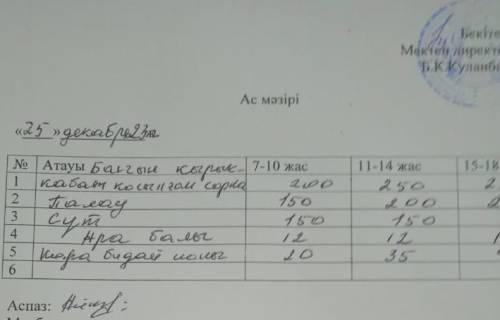 Бекіте
Мектеп директо
Б.К.Куланба
Ас мәзірі
«25» декабрь 23ж
№ Атауы Балғын қырық- 7-10 жас 11-14 жас 15-18
1 қабат қосылған сорпа 200 250 2
2 Палау 150 200 2
3 Сүт 150 150
4 Ара балы 12 12 1
5 Қара бидай наны 20 35
6
Аспаз: